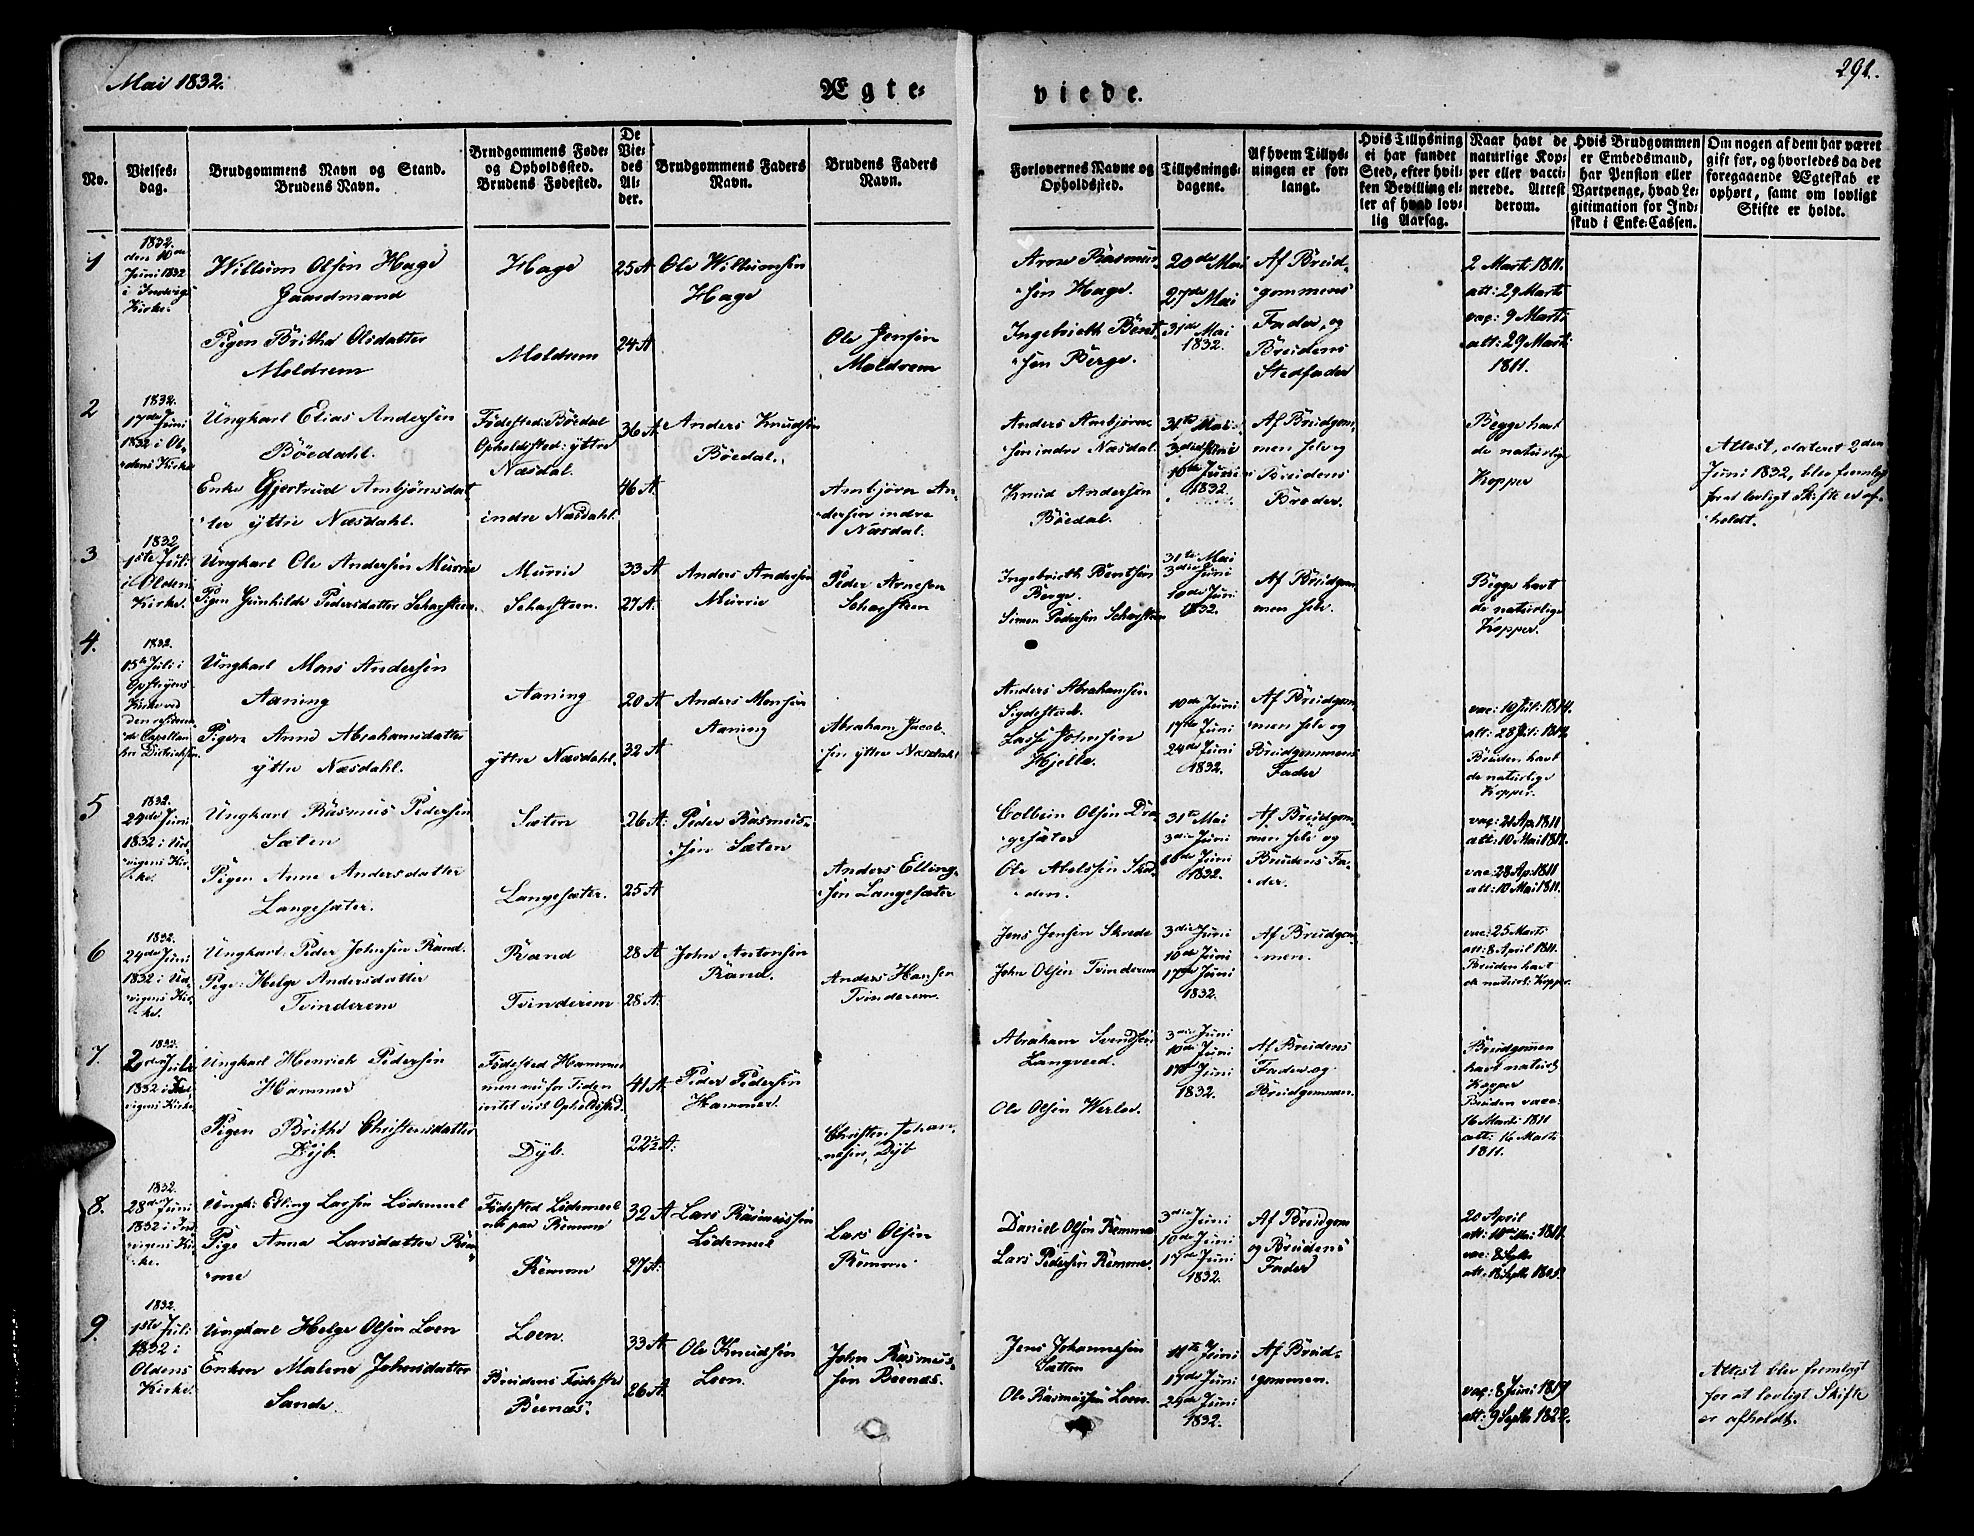 Mai 1832.
Ægte-
viede.
291.
No.
Vielses-
dag.
Brudgommens Navn og Stand.
Brudens Navn.
Brudgommens Føde-
og Opholdssted.
Brudens Fødested.
De
Vie-
des
Al-
der.
Brudgommens Faders
Navn.
Brudens Faders
Navn.
Forlovernes Navne og
Opholdssted.
Tillysnings-
dagene.
Af hvem Tillys-
ningen er for-
langt.
Hvis Tillysning
ei har fundet
Sted, efter hvil-
ken Bevilling el-
ler af hvad lov-
lig Aarsag.
Naar havt de
naturlige Kop-
per eller vacci-
nerede. Attest
derom.
Hvis Brudgommen
er Embedsmand,
har Pension eller
Vartpenge, hvad Le-
gitimation for Ind-
skud i Enke-Cassen.
Om nogen af dem har været
gift før, og hvorledes da det
foregaaende Ægteskab er
ophørt, samt om lovligt
Skifte er holdt.
1
1832.
den 10de
Juni 1832
i Indvigs
Kirke.
Willum Olsen Hage
Gaardmand
Pigen Brithe Olsdatter
Meldrem
Hage
Meldrem
25 A
24 A
Ole Willumsen
Hage
Ole Jensen
Meldrem
Arne Rasmus-
sen Hage.
Ingebrieth Bent-
sen Berge.
20de Mai
27de Mai
31de Mai
1832.
Af Brud-
gommens
Fader, og
Brudens
Stedfader
2 Marts 1811.
att: 29 Marts
vac: 9 Marts
att: 29 Marts
1811.
2
1832.
17de Juni
1832 i Ol-
dens Kirke
Ungkarl Elias Andersen
Bøedahl.
Enke Gjertrud Ambjørnsdat-
ter yttre Næsdahl.
Fødested: Bøedal
Opholdsted: yttre
Næsdal.
indre Næsdahl.
36 A.
46 A.
Anders Knudsen
Bøedal.
Ambjørn An-
dersen indre
Næsdal.
Anders Ambjørn-
sen indre Næsdal.
Knud Andersen
Bøedal.
31te Mai
3die Juni
10de Juni
1832.
Af Brudgom-
men selv og
Brudens
Broder.
Begge havt
de naturlige
Kopper
Attest, dateret 2den
Juni 1832, blev fremlagt
for at lovligt Skifte er af-
holdt.
3
1832
1ste Juli
i Olden
Kirke.
Ungkarl Ole Andersen Murrie
Pigen Gunhilde Pedersdatter Scharsteen.
Murrie
Scharsteen.
33 A
27 A.
Anders Andersen
Murrie
Peder Arnesen
Scharsteen
Ingebrieth Bentsen
Berge.
Simon Pedersen Scharsteen
31te Mai
3die Juni
10de Juni
1832.
Af Brudgom-
men selv.
Begge havt
de naturlige
Kopper.
4.
1832.
15de Juli i
Opstryens
Kirke ved
den residere-
de Capellan
Hr Dietrichsen.
Ungkarl Mons Andersen
Aaning
Pigen Anne Abrahamsdatter
yttre Næsdahl.
Aaning
yttre Næsdahl.
20 A
32 A
Anders Monsen
Aaning
Abraham Jacob-
sen yttre Næsdahl
Anders Abrahamsen
Sigdestad.
Lasse Johnsen
Hjelle.
10de Juni
17de Juni
24de Juni
1832.
Af Brudgom-
men selv og
Brudgommens
Fader
Bruden havt
de naturlige
Kopper.
5
1832.
24de Juni
1832 i Ud-
vigens Kir-
ke.
Ungkarl Rasmus Pedersen
Sæten
Pigen Anne Andersdatter
Langesæter.
Sæten
Langesæter.
26 A:
25 A.
Peder Rasmus-
sen Sæten
Anders Elling-
sen Langesæter
Colbein Olsen Dra-
gesæter
Ole Abelssen Skad-
den.
31te Mai
3die Juni
10de Juni
1832.
Af Brudgom-
men selv og
Brudens Fa-
der.
vac: 21 Ap: 1811
att: 10 Mai 1811.
vac: 28 Ap: 1811
att: 10 Mai 1811.
6
1832.
24de Juni
1832 i Ud-
vigens Kir-
ke.
Ungkarl Peder Johnsen Rand.
Pige: Helge Andersdatter
Tvinderem
Rand
Tvinderem
28 A
28 A.
John Antonsen
Rand.
Anders Hansen
Tvinderem.
Jens Jensen Skrede
John Olsen Tvinderem
3die Juni
10de Juni
17de Juni
1832.
Af Brudgom-
men.
vac: 25 Marts
att: 8 April 1811.
Bruden havt
de naturl: Kopper.
7
1832.
2den Juli
1832 i Ind-
vigens Kirke
Ungkarl Henrich Pedersen
Hammer
Pigen Brithe Christensdatter
Dyb.
Fødested Hammer
men nu for Tiden
intet vist Opholdsted.
Dyb.
41 A.
22½ A:
Peder Pedersen
Hammer.
Christen Johan-
nesen, Dyb
Abraham Svendsen
Langveed.
Ole Olsen Werlo.
3die Juni
10de Juni
17de Juni
1832.
Af Brudens
Fader og
Brudgommen.
Brudgommen
havt naturl:
Kopper
Bruden vacc:
16 Marts 1811
att: 16 Marts
1811.
8.
1832.
28de Juni
1832 i Ind-
vigens Kir-
ke.
Ungk: Elling Larsen Lødemel
Pige Anna Larsdatter Rem-
me
Fødested Lødemel
nu paa Remme
Remme
32 A
27 A.
Lars Rasmussen
Lødemel
Lars Olsen
Remme.
Daniel Olsen Remme
Lars Pedersen Remme.
3die Juni
10de Juni
17de Juni
1832.
Af Brudgom
og Brudens
Fader
20 April
att: 10 Mai 1811.
vac: 8 Septb
att: 18 Septb 1805.
9.
1832.
1ste Juli
1832 i
Oldens
Kirke.
Ungkarl Helge Olsen Loen
Enken Malene Johnsdatter
Sande.
Loen.
Brudens Fødested
Beenæs.
33 A
26 A.
Ole Knudsen
Loen.
John Rasmus-
sen Beenæs.
Jens Johannesen
Sætten
Ole Rasmussen Loen.
11te Juni
17de Juni
24de Juni
1832.
Af Brud-
gommen.
vac: 8 Juni 1819.
att: 9 Septb 1822.
Attest blev fremlagt
for at lovligt Skifte
er afholdt.